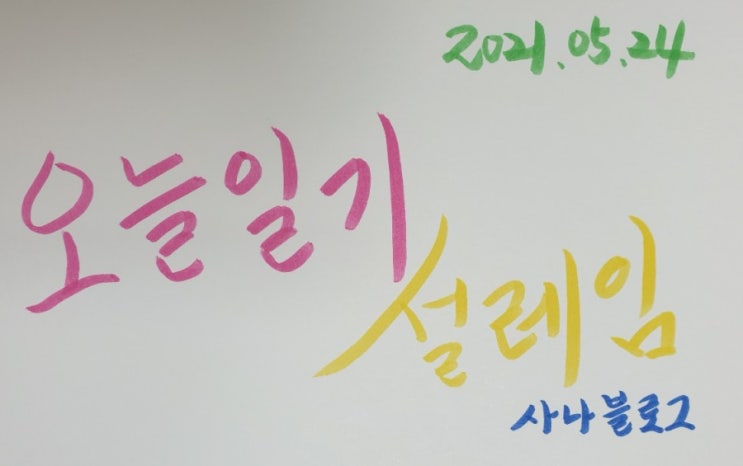 2021.05.24
오늘일기
설레임
사나블로그